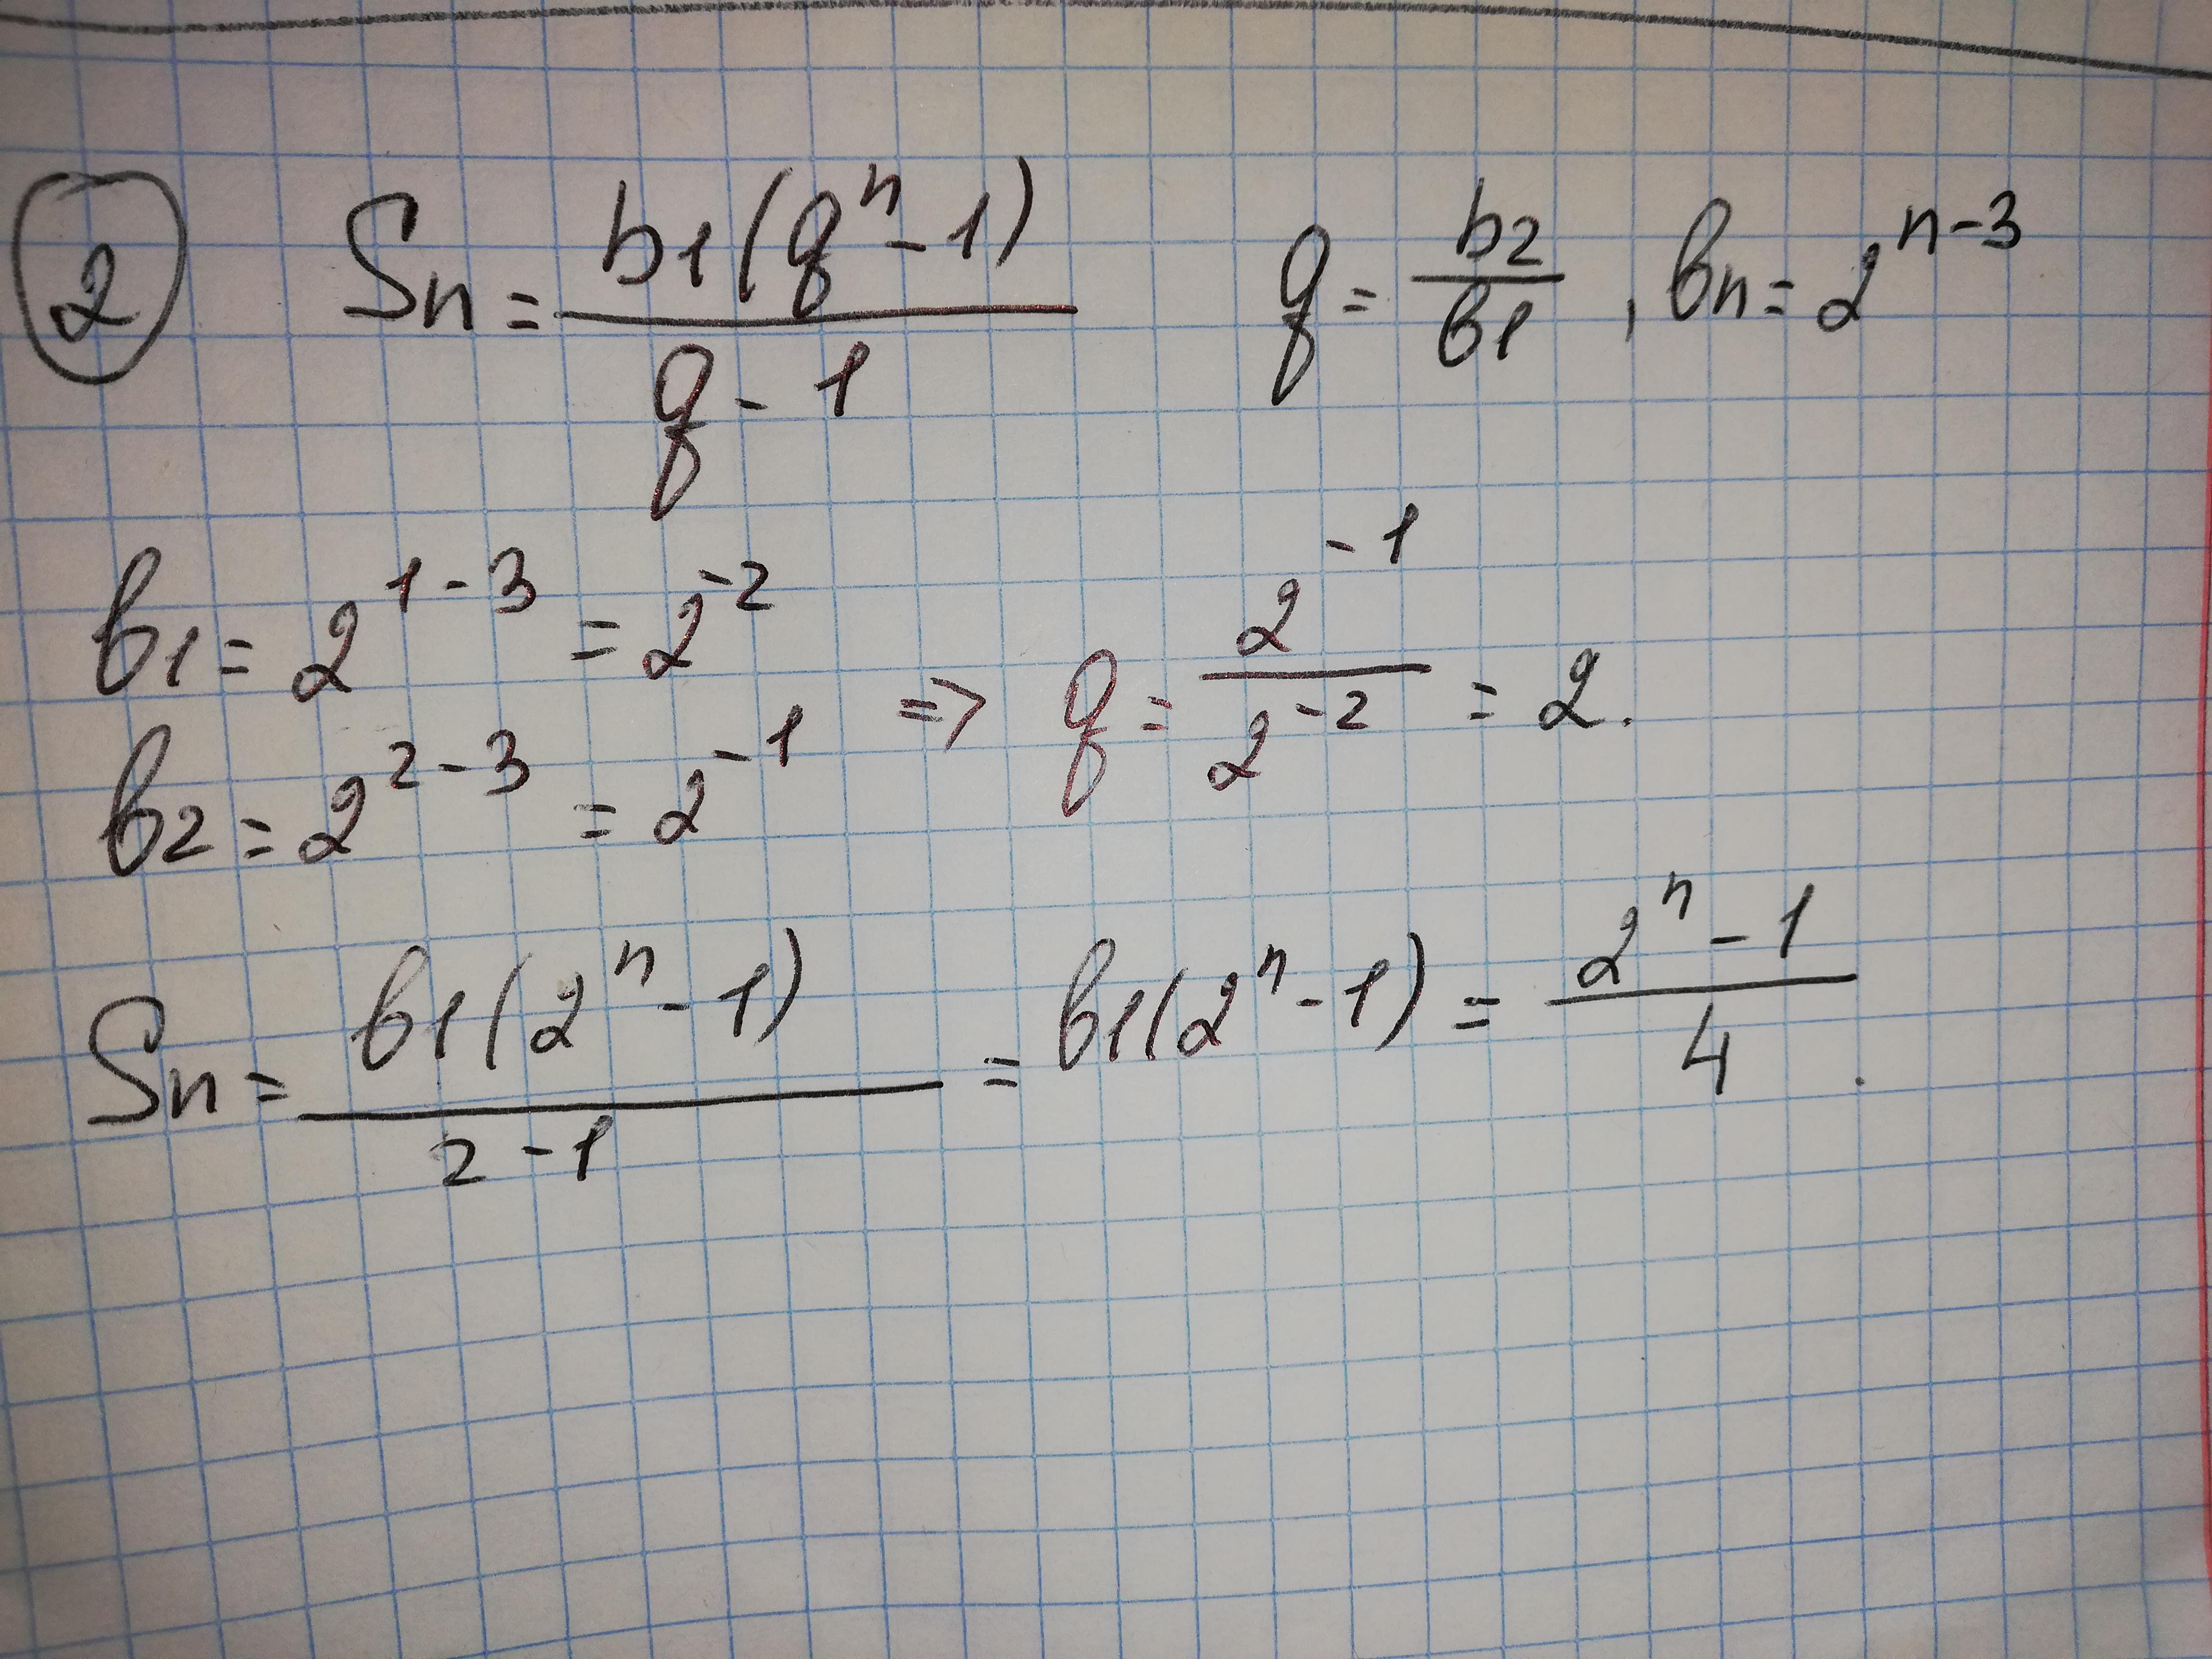 ② Sn = b1(qⁿ - 1) / q - 1    q = b2 / b1 , bn = 2ⁿ⁻³
b1 = 2¹⁻³ = 2⁻²
b2 = 2²⁻³ = 2⁻¹ => q = 2⁻¹ / 2⁻² = 2.
Sn = b1(2ⁿ - 1) / 2 - 1 = b1(2ⁿ - 1) = 2ⁿ - 1 / 4 .